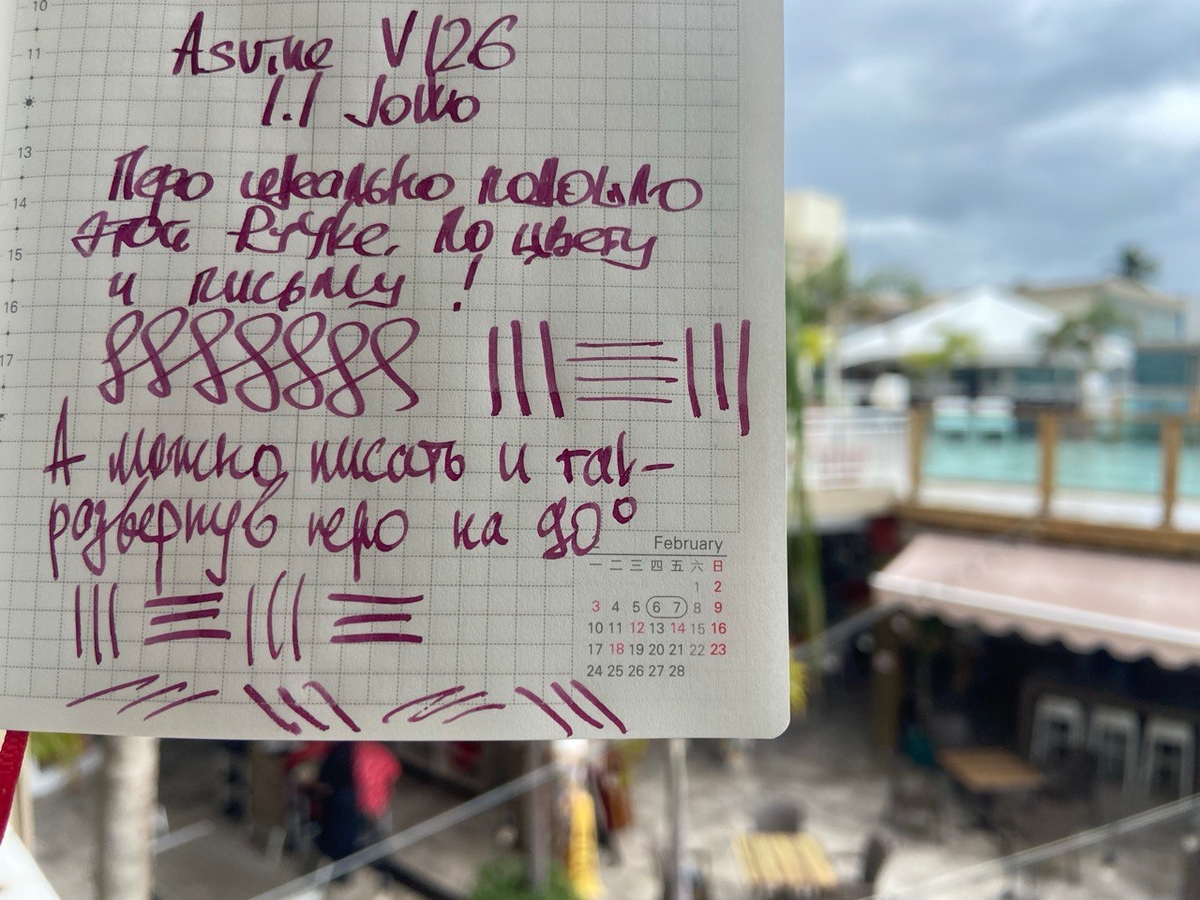 10
11
13
14
15
16
17
Asvine V126
1.1 Jowo
Перо идеально подошло
этой ручке, по цвету
и письму!
А можно писать и так-
развернув перо на 90°
February
一 二 三 四 五 六 日
1 2
3 4 5 6 7 8 9
10 11 12 13 14 15 16
17 18 19 20 21 22 23
24 25 26 27 28